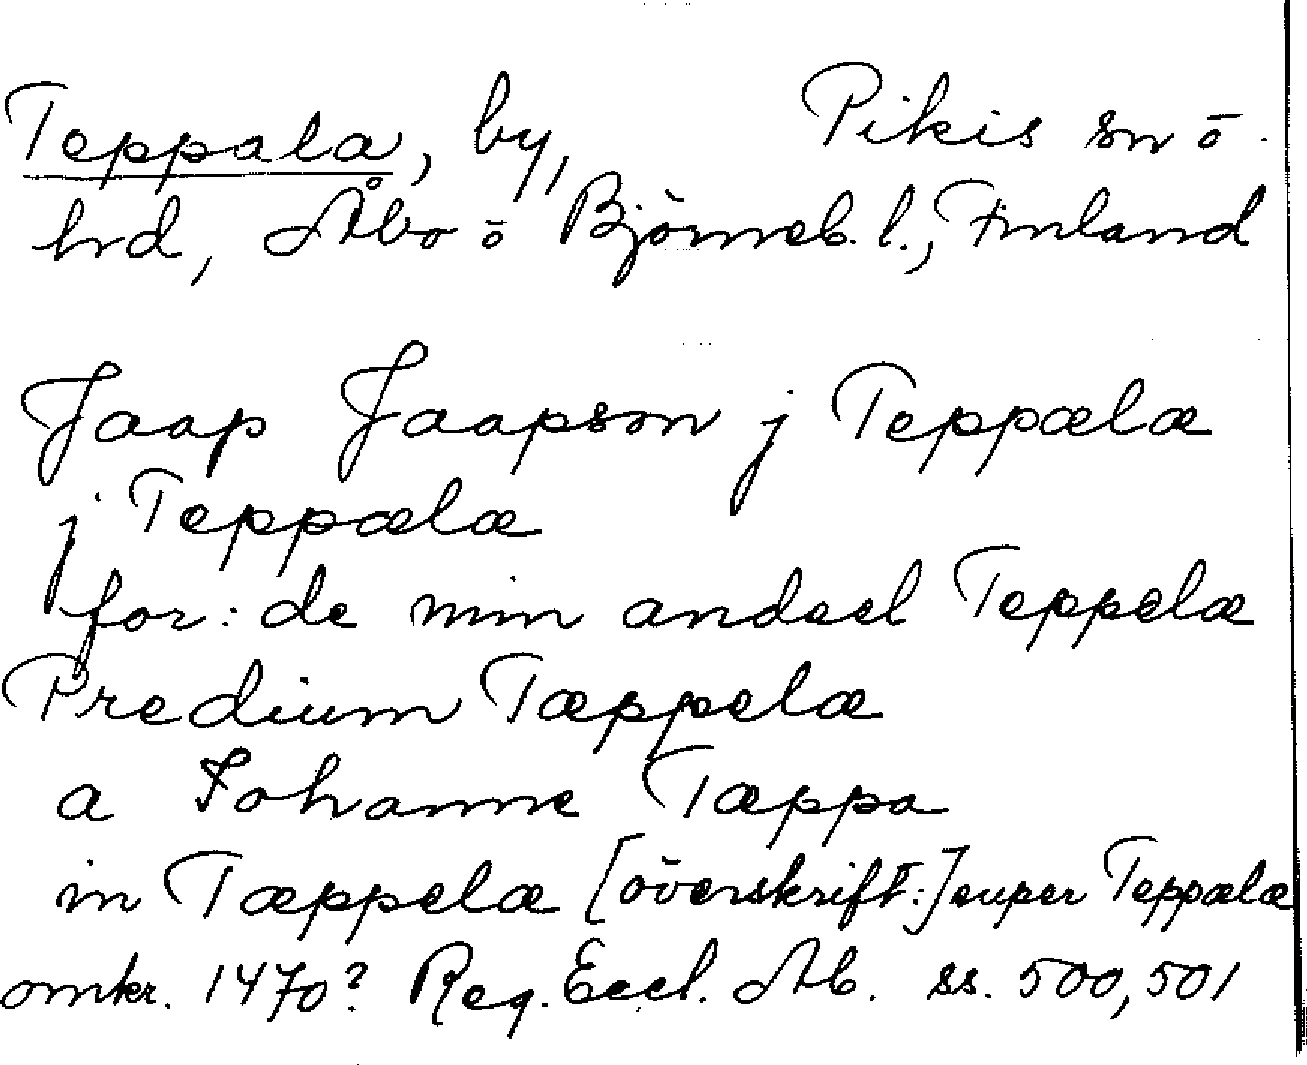 Teppala, by, Pikis sn ō
hd, Åbo ō Björneb. l., Finland
Jaap Jaapson j Teppælæ
j Teppælæ
for: de min andeel Teppelæ
Predium Tæppelæ
a Johanne Tæppa
in Tæppelæ [överskrift:] super Teppælæ
omkr. 1470? Reg. Eccl. Ab. ss. 500, 501